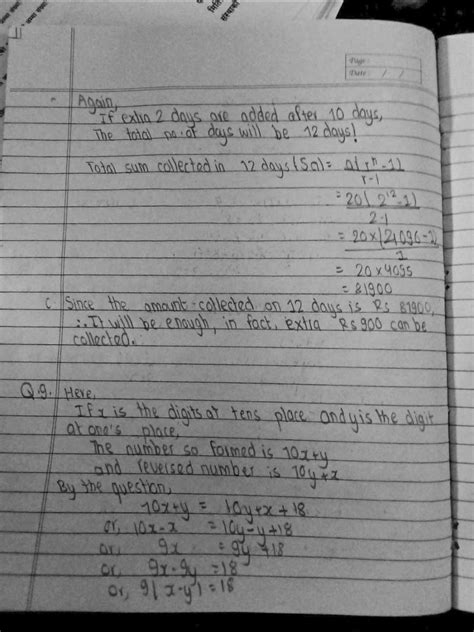 Page:
Date: / /
Again,
If extra 2 days are added after 10 days,
The total no of days will be 12 days!
Total sum collected in 12 days (Sn) = a(rⁿ-1)
r-1
= 20(2¹²-1)
2-1
= 20×(4096-1)
1
= 20×4095
= 81900
c. Since the amount collected on 12 days is Rs 81900,
∴ It will be enough, in fact, extra Rs 900 can be
collected.
Q.9. Here,
If x is the digits at tens place and y is the digit
at one's place,
The number so formed is 10x+y
and reversed number is 10y+x
By the question,
10x+y = 10y+x+18
or, 10x-x = 10y-y+18
or, 9x = 9y+18
or, 9x-9y=18
or, 9(x-y)=18